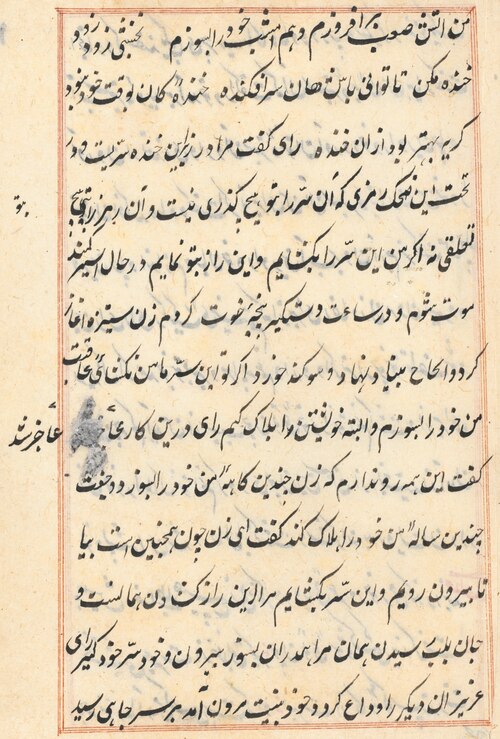 من آتش صعب برافروزم و هم امشب خود را بسوزم نخشبی زود زود
خنده مکن تا توانی باش هان سر افکنده خنده کان بوقت خود نبود
گریه بهتر بود ازان خنده رای گفت مرا در زیر این خنده سریست و در
تحت این ضحک رمزی که آن سر را بتو هیچ گذری نیست و آن رمز را بتو هیچ
تعلقی نه اگر من این سر را بگشایم و این راز بتو نمایم در حال اسیر کمند
موت شوم و در ساعت دستگیر پنجهٔ فوت گردم زن ستیزه آغاز
کرد و الحاح بنیاد نهاد و سوگند خورد اگر تو این سر با من نگشائی عاقبت
من خود را بسوزم و البته خویشتن را هلاک کنم رای درین کار
عاجز شد
گفت این همه روندارم که زن چندین گاهه من خود را بسوزد و جفت
چندین ساله من خود را هلاک کند گفت ای زن چون همچنین است بیا
تا بیرون رویم و این سر بگشایم مرا این راز گشادن همانست و
جان بلب رسیدن همان مرا همدران بسوز بیرون و خود سر خود گیر رای
عزیزان دیگر را وداع کرد و خود بنیت مردن آمد بر سر چاهی رسید